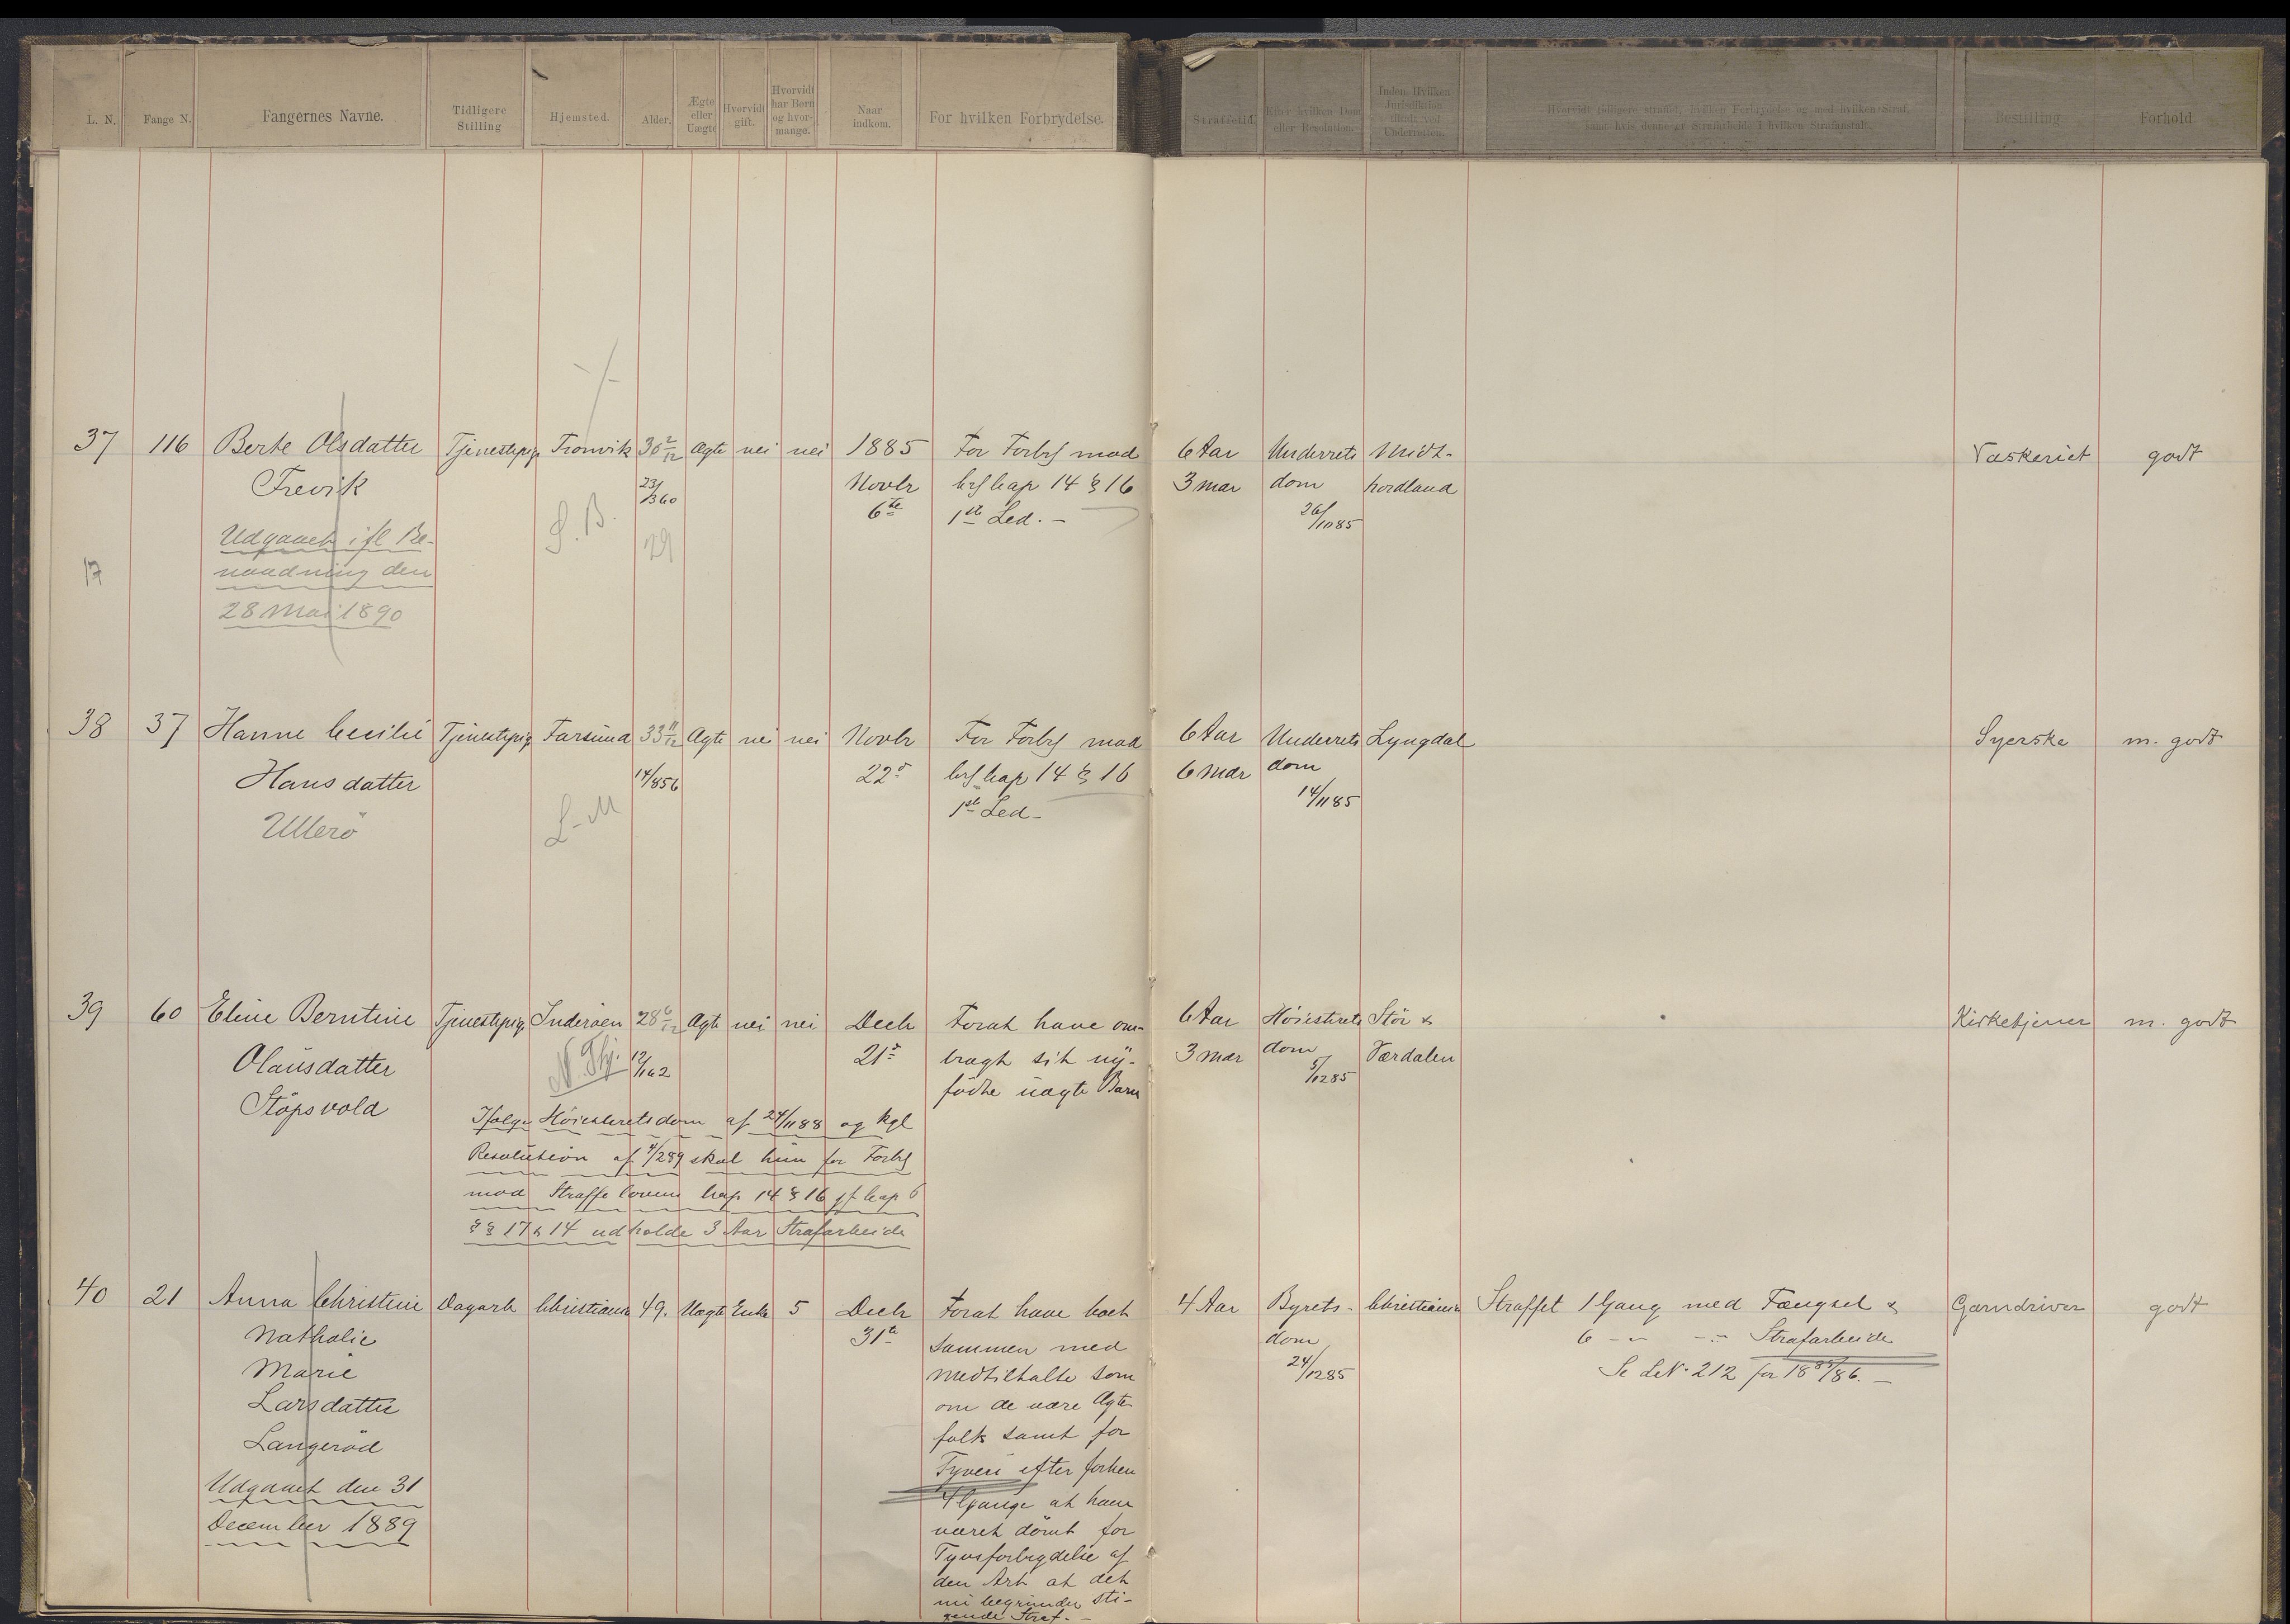 L. N.
Fange N.
Fangernes Navne.
Tidligere
Stilling
Hjemsted.
Alder.
Ægte
eller
Uægte
Hvorvidt
gift.
Hvorvidt
har Børn
og hvor-
mange.
Naar
indkom.
For hvilken Forbrydelse.
Straffetid.
Efter hvilken Dom
eller Resolution.
Inden Hvilken
Jurisdiktion
dømt ved
Underretten.
Hvorvidt tidligere straffet, hvilken Forbrydelse og med hvilken Straf,
samt hvis denne er Strafarbeide i hvilken Strafanstalt.
Bestilling.
Forhold.
37 116 Berte Olsdatter Tjenestepig Tronvik 30 2/12 Ægte nei nei 1885 For Forbr mod 6 Aar Underrets Midt- Vaskeriet godt
Trevik 23/360 Novbr brf kap 14 § 16 3 mdr dom hordland
6te 1ste Led. - 26/1085
Udgaaet ifl Be-
S. B. 29
17
naadning den
28 Mai 1890
38 37 Hanne Cecilie Tjenestepig Farsund 33 11/12 Ægte nei nei Novbr For Forbr mod 6 Aar Underrets Lyngdal Syerske m. godt
Hansdatter 14/856 22d brf kap 14 § 16 6 Mdr dom
Ullerö L-M 1ste Led - 14/1185
39 60 Eline Berntine Tjenestepig Inderøen 28 6/12 Ægte nei nei Decb Forat have om- 6 Aar Höiesterets Stör & Kirketjener m. godt
Olausdatter N. Thj. 12/162 21de bragt sit ny- 3 mdr dom Værdalen
Stöpsvold födte uægte Barn 5/1285
Ifølge Höiesteretsdom af 24/1188 og kgl
Resolution af 4/289 skal hun for Forbr
mod Straffelovens kap 14 § 16 jf kap 6
§§ 17 & 14 udholde 3 Aar Strafarbeide
40 21 Anna Christine Dagarb Christiania 49. Uægte Enke 5 Decb Forat have boet 4 Aar Byrets- Christiania Straffet 1 Gang med Fængsel & Garndriver godt
Nathalie 31te sammen med dom 6 - " - " - Strafarbeide
Marie Medtiltalte som 24/1285 Se L.N. 212 for 1885/86. -
Larsdatter om de vare Ægte-
Langeröd folk samt for
Udgaaet den 31 Tyveri efter forhen
December 1889 4 Gange at have
været dömt for
Tyvsforbrydelse af
den Art at det
nu begrunder sti-
gende Straf. -